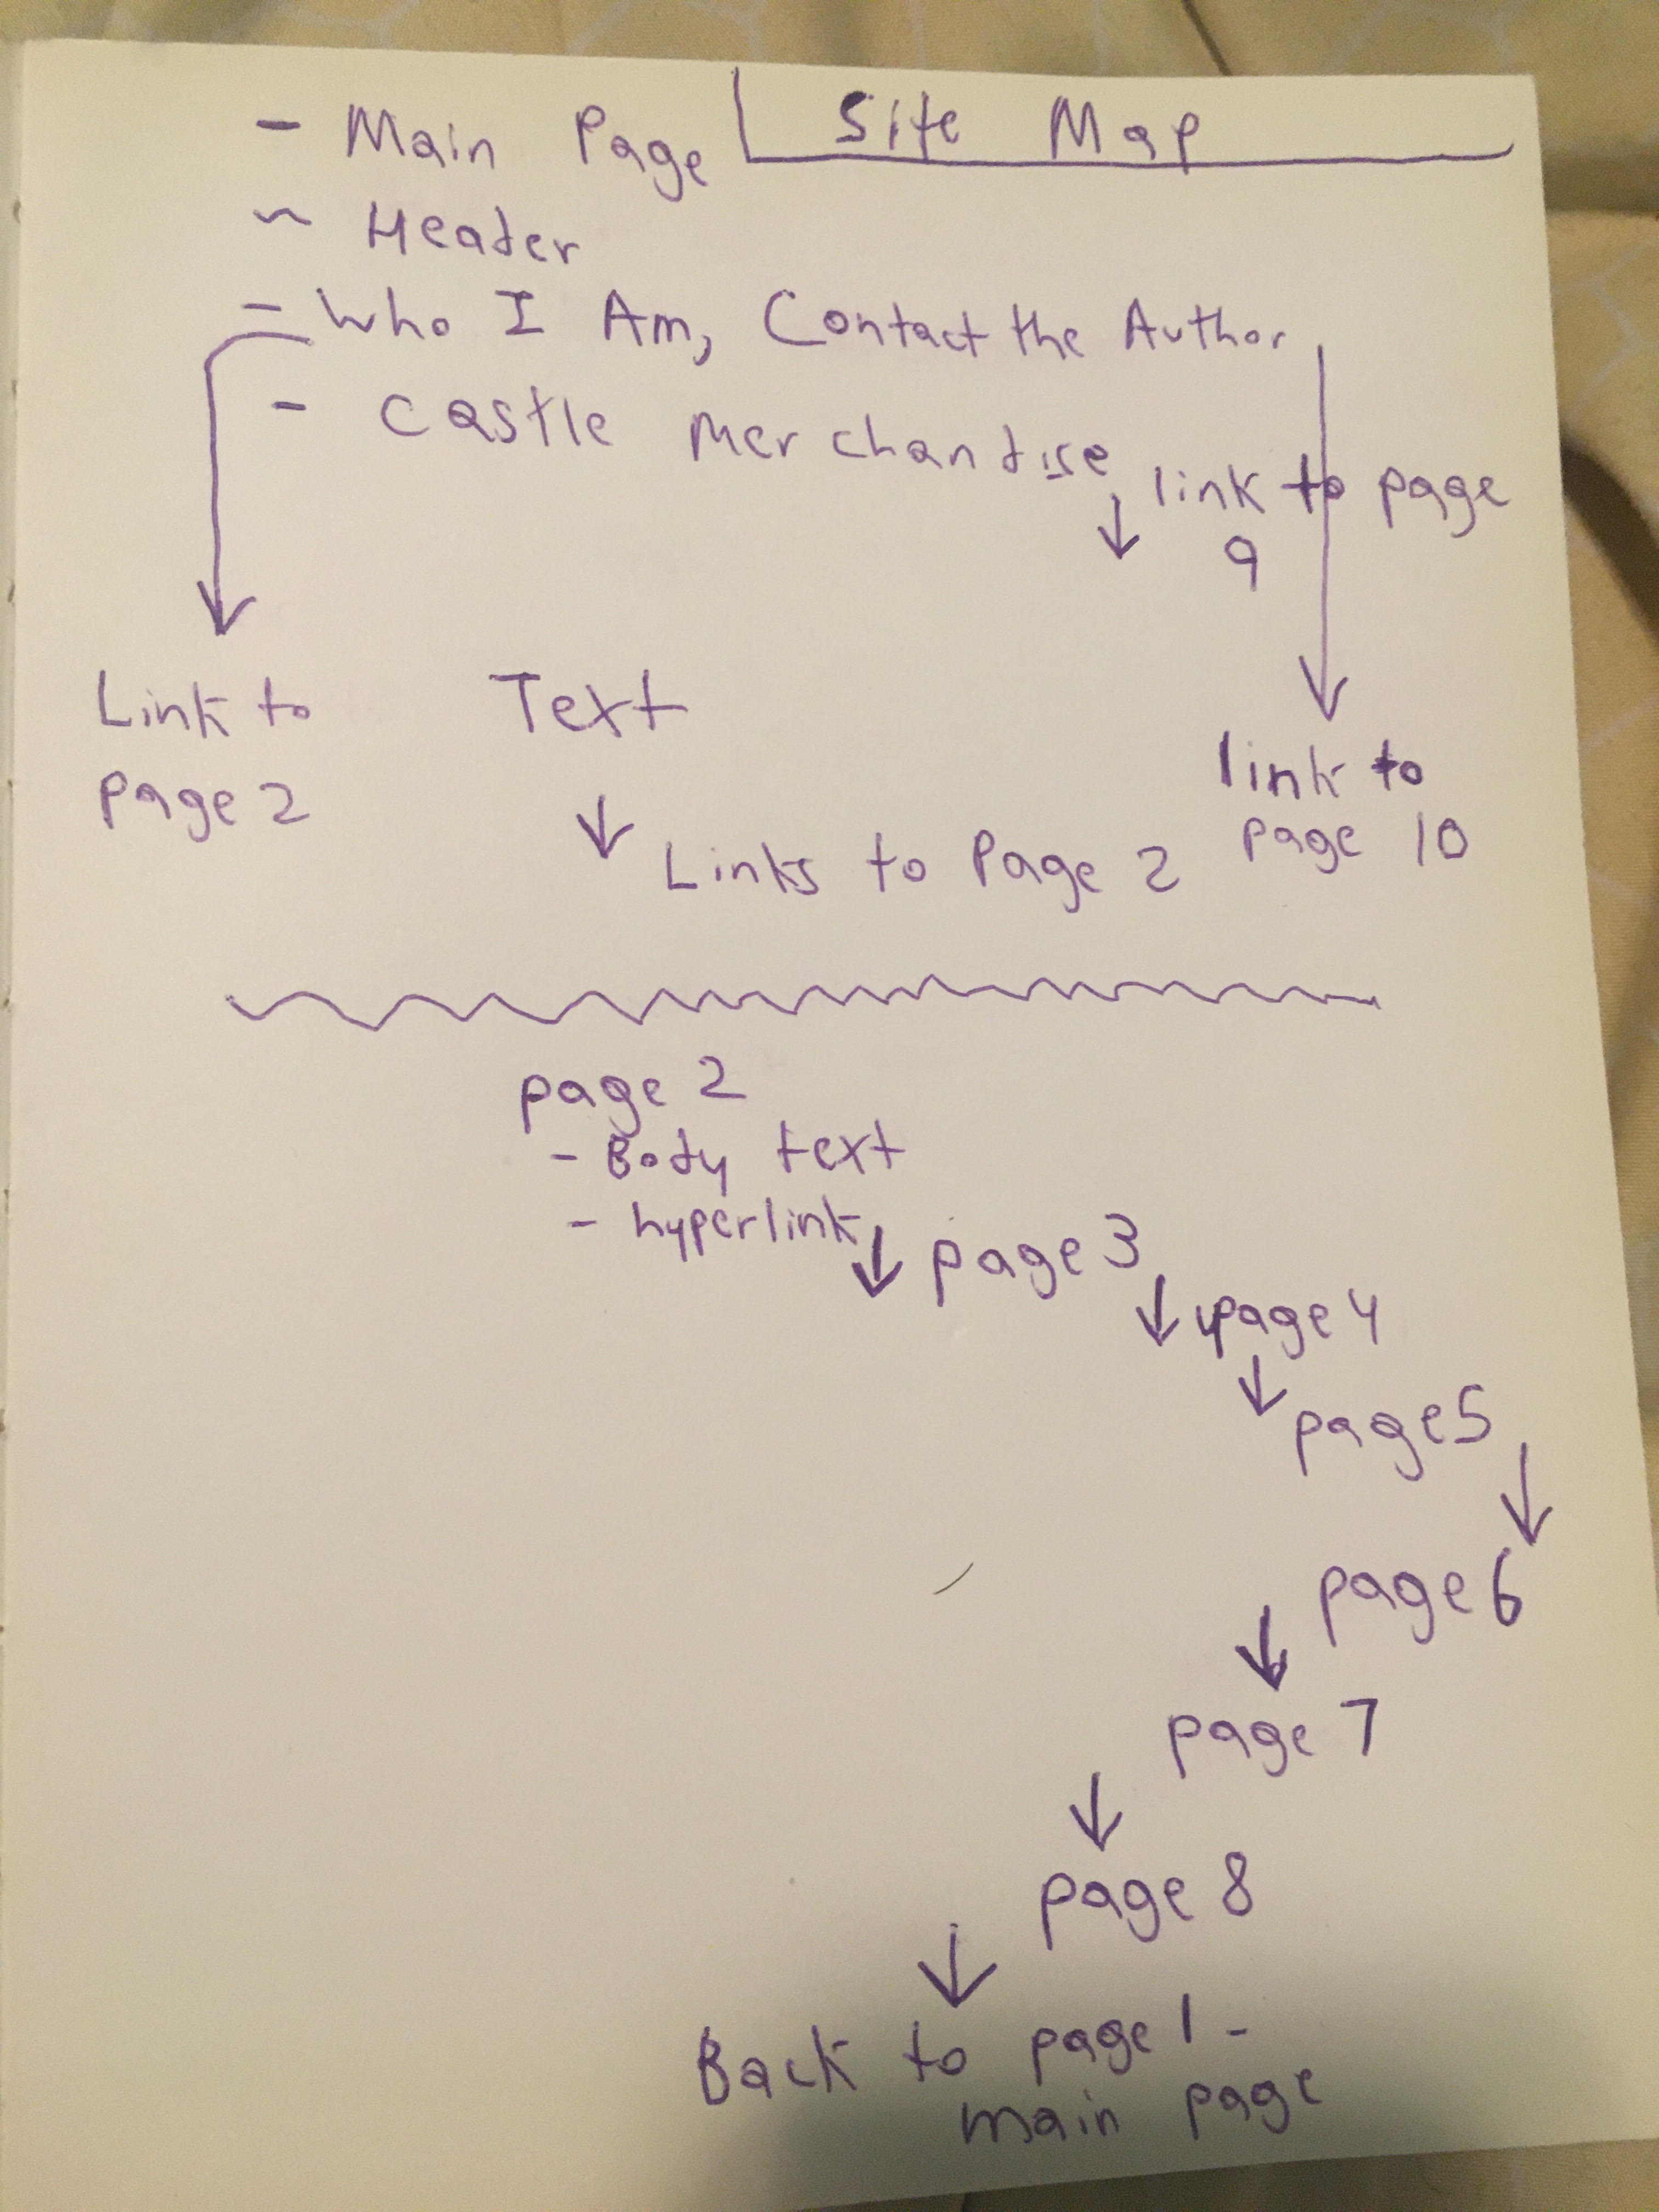 Site Map
- Main Page
~ Header
- Who I Am, Contact the Author
- Castle Merchandise
link to page
9
Link to
page 2
Text
Links to Page 2
link to
page 10
page 2
- Body text
- hyperlink
page 3
page 4
page 5
page 6
page 7
page 8
Back to page 1 -
main page